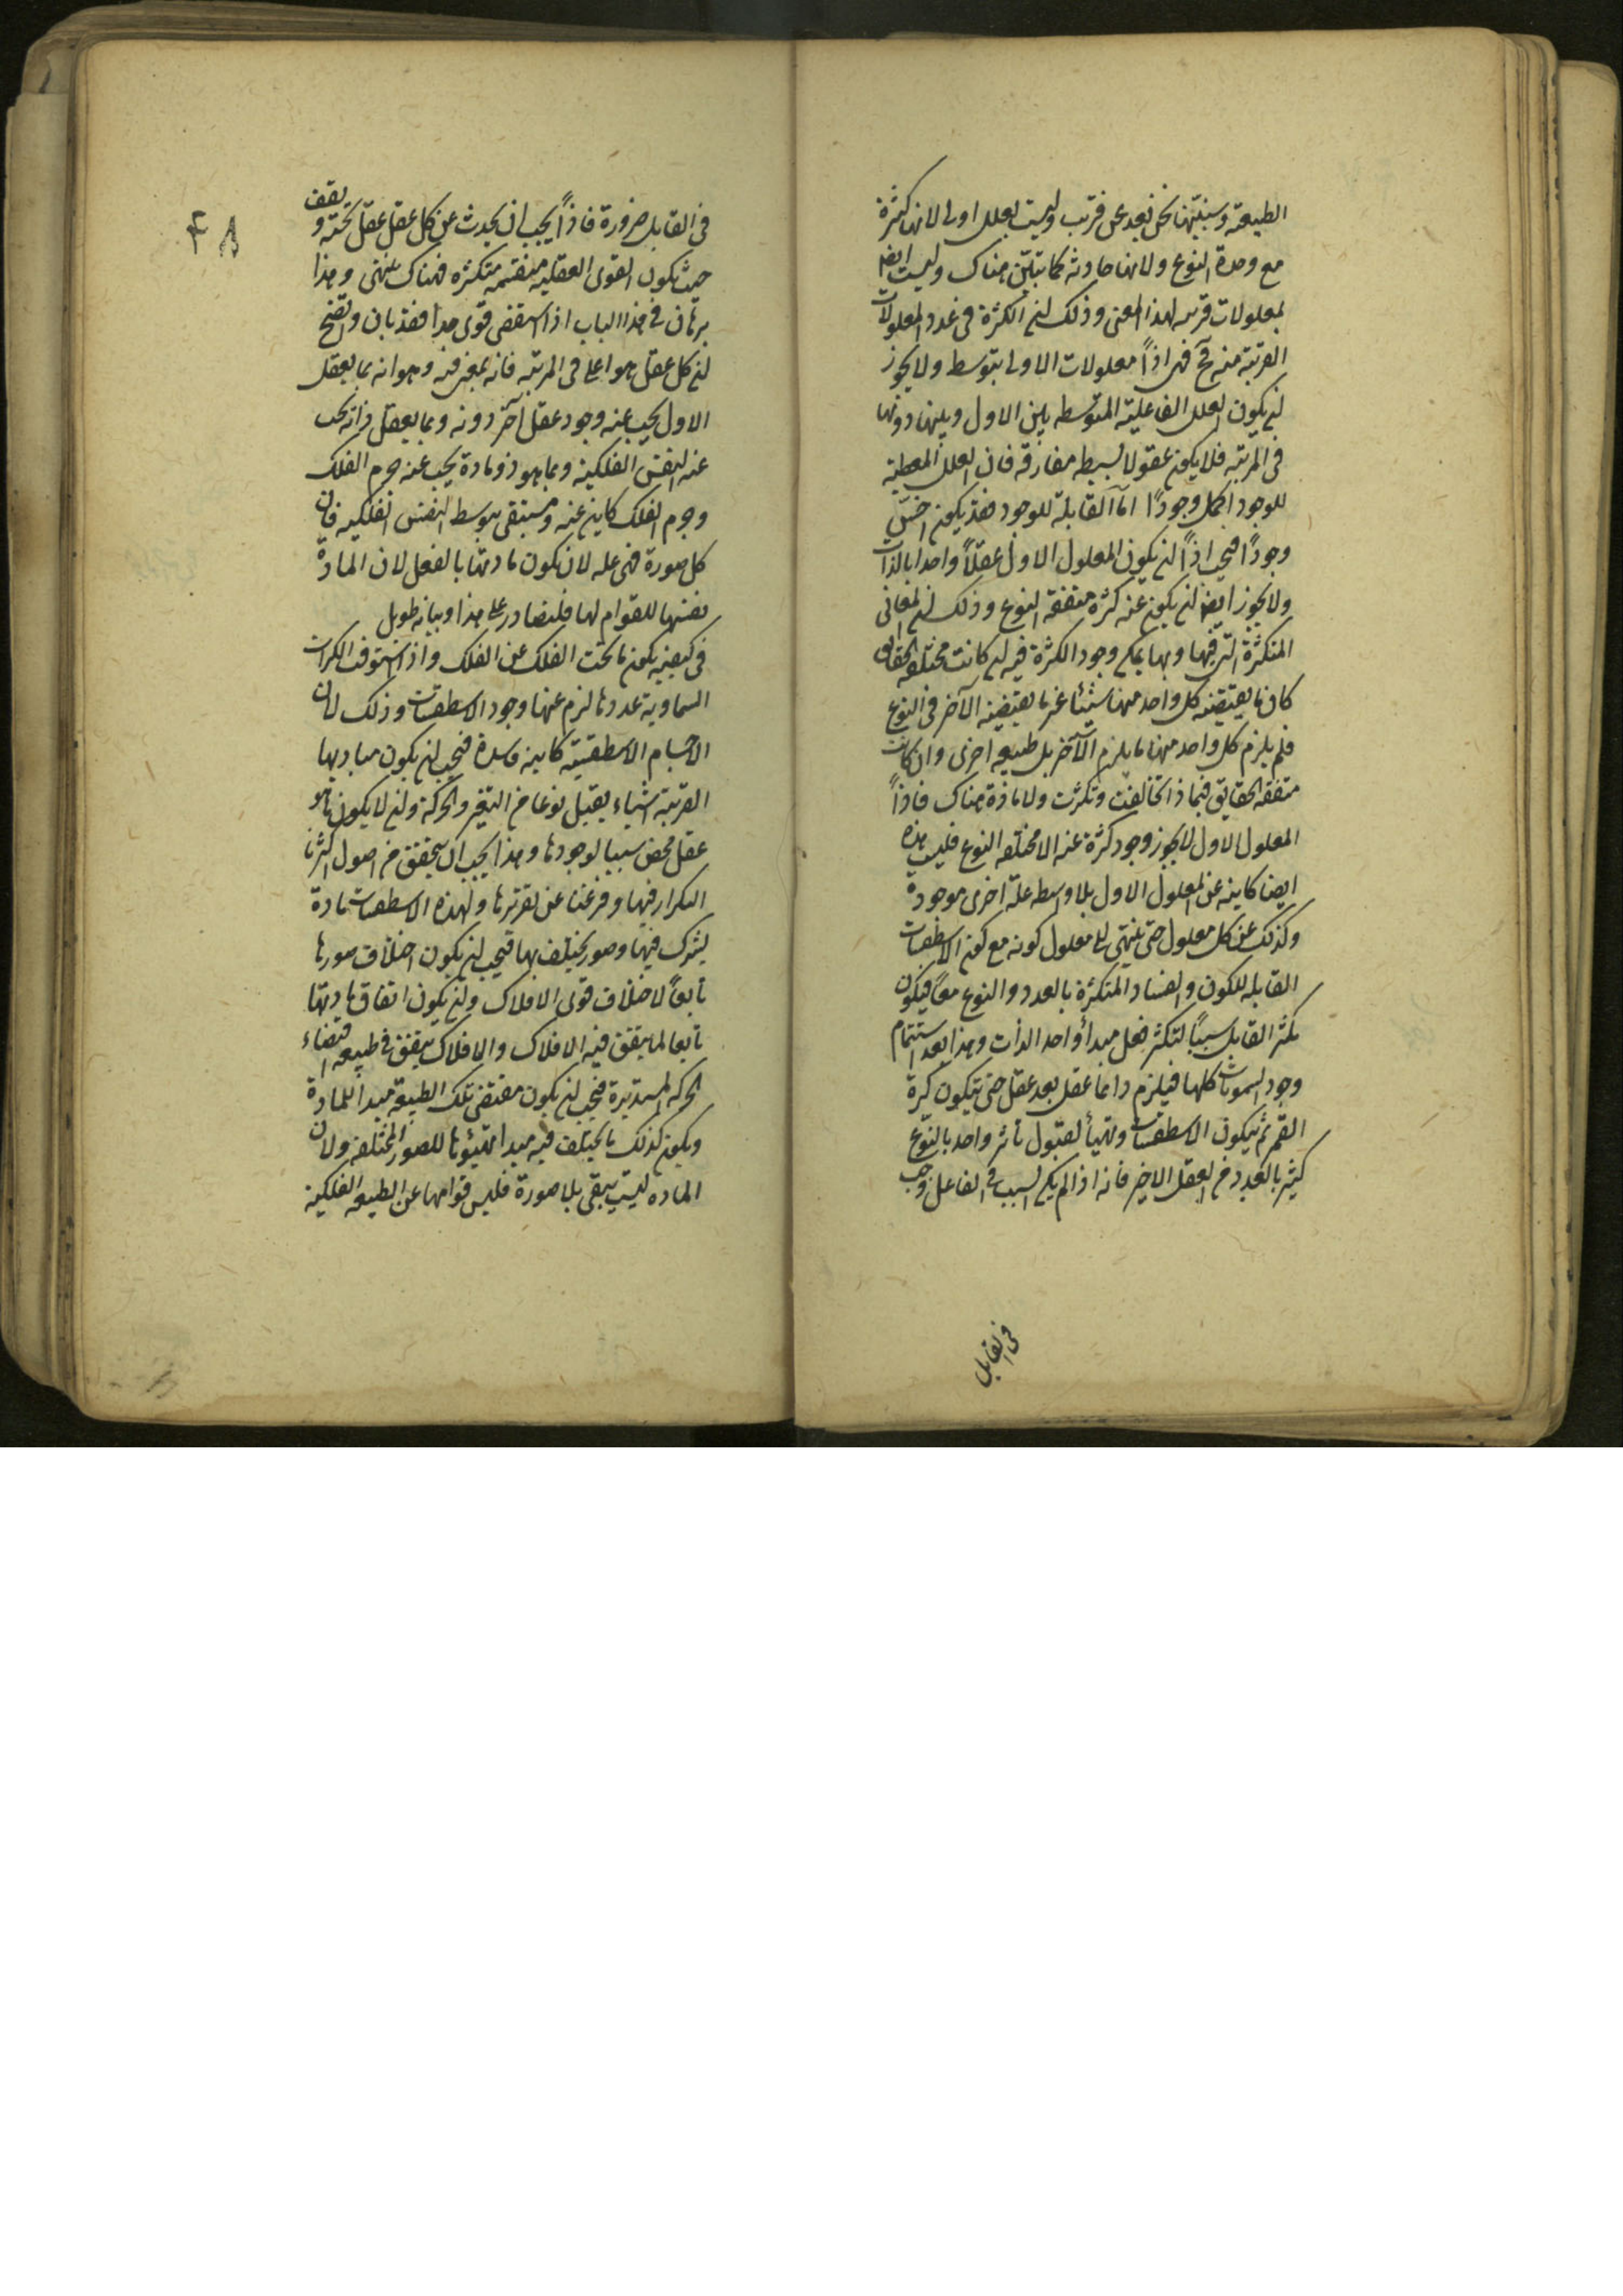 الطبيعة وسنبيّنها نحن بعد عن قريب وليست بعلل اولى لانها كثيرة
مع وحدة النوع ولانها حادثه كما تبيّن هناك وليست ايضا
بمعلولات قريبه لهذا المعنى وذلك لان الكثرة فى عدد المعلولات
القريبة منه مح فهى اذاً معلولات الاول بتوسط ولا يجوز
ان يكون العلل الفاعلية المتوسطه بين الاول وبينها دونها
فى المرتبه فلا يكون عقولا بسيطه مفارقه فان العلل المعطية
للوجود اكمل وجودًا امّا القابلة للوجود فقد يكون اخسّ
وجودًا فيجب اذاً ان يكون المعلول الاول عقلاً واحدا بالذات
ولا يجوز ايضا ان يكون عنه كثرة متفقة النوع وذلك ان المعانى
المتكثرة التى فيها وبها يمكن وجود الكثرة فيه ان كانت مختلفه الحقايق
كان ما يقتضيه كل واحد منها شيئا غير ما يقتضيه الآخر فى النوع
فلم يلزم كل واحد منها ما يلزم الآخر بل طبيعه اخرى وان كانت
متفقه الحقايق فبماذا تخالفت وتكثرت ولا مادة هناك فاذاً
المعلول الاول لا يجوز وجود كثرة عنه الا مختلفه النوع فليست هذه
ايضا كاينه عن المعلول الاول بلا واسطه علة اخرى موجودة
وكذلك عن كل معلول حتى ينتهى الى معلول كونه مع كون الاسطقسات
القابله للكون والفساد المتكثرة بالعدد والنوع معًا فيكون
تكثر القابل سببًا لتكثر فعل مبدأ واحد الذات وهذا بعد استتمام
وجود السموات كلها فيلزم دائما عقل بعد عقل حتى تتكون كرة
القمر ثم يتكون الاسطقسات وتتهيأ لقبول تأثر واحد بالنوع
كثير بالعدد من العقل الاخير فانه اذا لم يكن السبب فى الفاعل وجب
فى القابل
٤٨
فى القابل ضرورة فاذاً يجب ان يحدث عن كل عقل عقل تحته ويقف
حيث يكون القوى العقليه منقسمه متكثره فهناك ينتهى وهذا
برهان فى هذا الباب اذا استقصى قوى جدا فقد بان واتضح
ان كل عقل هو اعلى فى المرتبه فانه لمعنى فيه وهو انه بما يعقل
الاول يجب عنه وجود عقل آخر دونه وبما يعقل ذاته يجب
عنه النفس الفلكية وبما هو ذو مادة يجب عنه جرم الفلك
وجرم الفلك كاين عنه ومستبقى بتوسط النفس الفلكيه فان
كل صورة فهى عله لان تكون مادتها بالفعل لان المادة
نفسها لا قوام لها فليصادر على هذا وبيانه طويل
فى كيفيه يكون ما تحت الفلك عن الفلك واذا استوفت الكرات
السماوية عددها لزم عنها وجود الاسطقسات وذلك لان
الاجسام الاسطقسية كاينه فاسدة فيجب ان يكون مباديها
القريبة اشياء يقبل نوعا من التغير والحركة وان لا يكون ما هو
عقل محض سببا لوجودها وهذا يجب ان يتحقق من اصول اكثرنا
التكرار فيها وفرغنا عن تقريرها ولهذه الاسطقسات مادة
يشترك فيها وصور يختلف بها فيجب ان يكون اختلاف صورها
تابعاً لاختلاف قوى الافلاك وان يكون اتفاق مادتها
تابعا لما يتفق فيه الافلاك والافلاك يتفق فى طبيعه اقتضاء
الحركه المستديرة فيجب ان يكون مقتضى تلك الطبيعة مبدأ للمادة
ويكون كذلك ما يختلف فيه مبدا تهيؤها للصور المختلفه ولان
المادة ليست يبقى بلا صورة فليس قوامها عن الطبيعه الفلكية